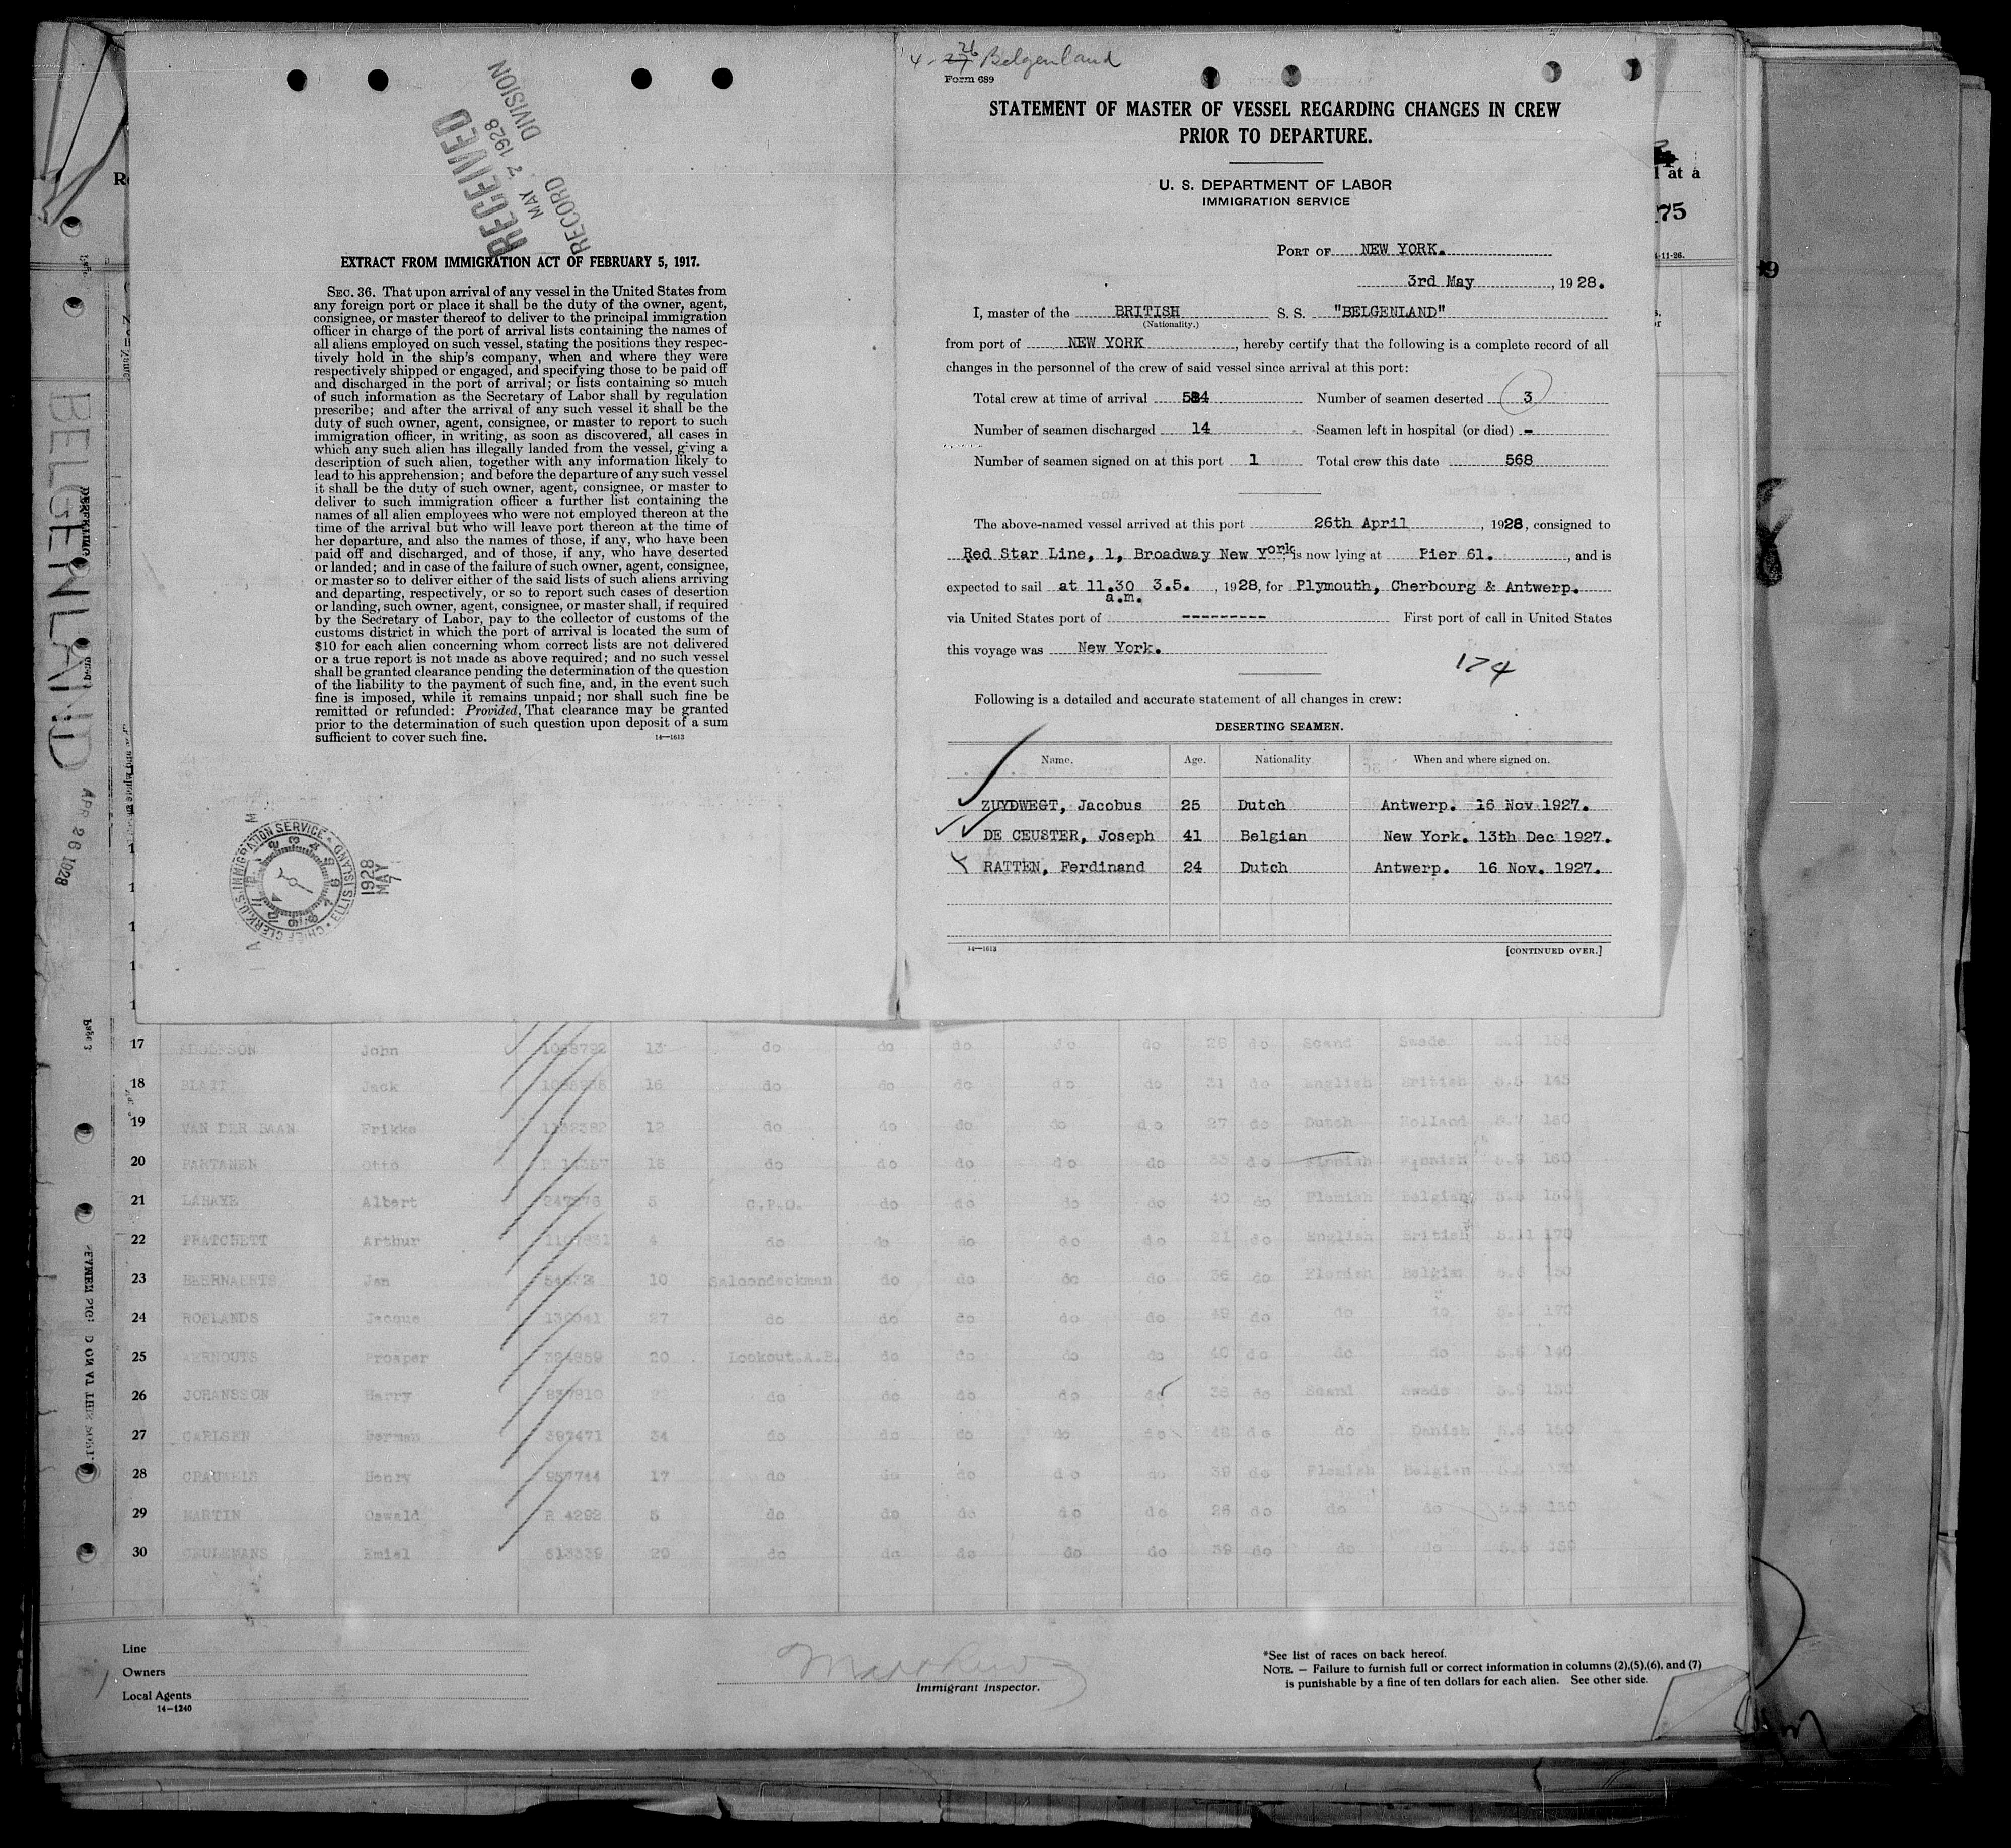 RECEIVED
MAY 7 1928
RECORD DIVISION
EXTRACT FROM IMMIGRATION ACT OF FEBRUARY 5, 1917.
SEC. 36. That upon arrival of any vessel in the United States from
any foreign port or place it shall be the duty of the owner, agent,
consignee, or master thereof to deliver to the principal immigration
officer in charge of the port of arrival lists containing the names of
all aliens employed on such vessel, stating the positions they respec-
tively hold in the ship's company, when and where they were
respectively shipped or engaged, and specifying those to be paid off
and discharged in the port of arrival; or lists containing so much
of such information as the Secretary of Labor shall by regulation
prescribe; and after the arrival of any such vessel it shall be the
duty of such owner, agent, consignee, or master to report to such
immigration officer, in writing, as soon as discovered, all cases in
which any such alien has illegally landed from the vessel, giving a
description of such alien, together with any information likely to
lead to his apprehension; and before the departure of any such vessel
it shall be the duty of such owner, agent, consignee, or master to
deliver to such immigration officer a further list containing the
names of all alien employees who were not employed thereon at the
time of the arrival but who will leave port thereon at the time of
her departure, and also the names of those, if any, who have been
paid off and discharged, and of those, if any, who have deserted
or landed; and in case of the failure of such owner, agent, consignee,
or master so to deliver either of the said lists of such aliens arriving
and departing, respectively, or so to report such cases of desertion
or landing, such owner, agent, consignee, or master shall, if required
by the Secretary of Labor, pay to the collector of customs of the
customs district in which the port of arrival is located the sum of
$10 for each alien concerning whom correct lists are not delivered
or a true report is not made as above required; and no such vessel
shall be granted clearance pending the determination of the question
of the liability to the payment of such fine, and, in the event such
fine is imposed, while it remains unpaid; nor shall such fine be
remitted or refunded: Provided, That clearance may be granted
prior to the determination of such question upon deposit of a sum
sufficient to cover such fine.
14—1613
CHIEF CLERK, U.S. IMMIGRATION SERVICE ELLIS ISLAND
1928
MAY
7
4-26 Belgenland
Form 689
STATEMENT OF MASTER OF VESSEL REGARDING CHANGES IN CREW
PRIOR TO DEPARTURE.
U. S. DEPARTMENT OF LABOR
IMMIGRATION SERVICE
PORT OF NEW YORK.
3rd May, 1928.
I, master of the BRITISH S. S. "BELGENLAND"
(Nationality.)
from port of NEW YORK, hereby certify that the following is a complete record of all
changes in the personnel of the crew of said vessel since arrival at this port:
Total crew at time of arrival 584 Number of seamen deserted 3
Number of seamen discharged 14 Seamen left in hospital (or died) -
Number of seamen signed on at this port 1 Total crew this date 568
The above-named vessel arrived at this port 26th April, 1928, consigned to
Red Star Line, 1, Broadway New York, is now lying at Pier 61., and is
expected to sail at 11.30 a.m. 3.5., 1928, for Plymouth, Cherbourg & Antwerp.
via United States port of --------- First port of call in United States
this voyage was New York.
174
Following is a detailed and accurate statement of all changes in crew:
DESERTING SEAMEN.
Name. Age. Nationality When and where signed on.
ZUYDWEGT, Jacobus 25 Dutch Antwerp. 16 Nov 1927.
DE CEUSTER, Joseph 41 Belgian New York. 13th Dec 1927.
RATTEN, Ferdinand 24 Dutch Antwerp. 16 Nov. 1927.
14—1613 [CONTINUED OVER.]
BELGENLAND APR 26 1928
Page 3
17 John 13 do do do do do 28 do Scand Swede 5.9
18 Jack 16 do do do do do 31 do English British 5.5 145
19 VAN DER BAAN Frikke 12 do do do do do 27 do Dutch Holland 5.7 160
20 PARTANEN Otto do do do do do do Finnish Finnish 5.9 160
21 LAHAYE Albert 5 C.P.O. do do do do 40 do Flemish Belgian
22 PRATCHETT Arthur 4 do do do do do 21 do English British 5.11 170
23 BEERNAERTS Jan 10 Saloondeckman do do do do 36 do Flemish Belgian
24 ROELANDS Jacque 27 do do do do do 49 do do do 170
25 AERNOUTS Prosper 20 Lookout.A.B. do do do do 40 do do do 5.6 140
26 JOHANSSON Harry do do do do do 38 do Scand Swede 5.9
27 CARLSEN Herman 397471 34 do do do do do 48 do do Danish 5.6 150
28 CRAUWELS Henry 957744 17 do do do do do 39 do Flemish Belgian
29 MARTIN Oswald R 4292 5 do do do do do 28 do do do
30 CEULEMANS Emiel 613339 29 do do do do do 39 do do do
Line
Owners
Local Agents
14—1240
Immigrant Inspector.
*See list of races on back hereof.
NOTE. — Failure to furnish full or correct information in columns (2),(5),(6), and (7)
is punishable by a fine of ten dollars for each alien. See other side.